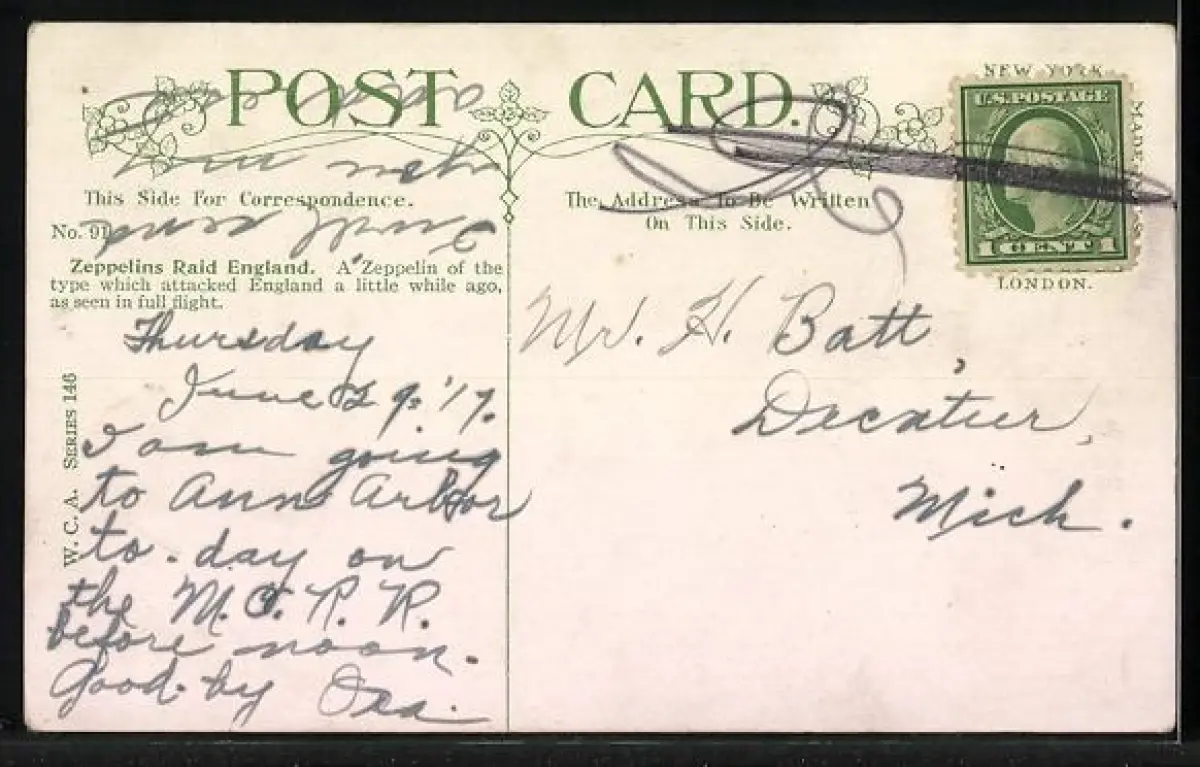 POST CARD.
NEW YORK
U.S. POSTAGE
1 CENT 1
LONDON.
This Side For Correspondence.
The Address To Be Written
On This Side.
No. 91
Zeppelins Raid England. A Zeppelin of the
type which attacked England a little while ago,
as seen in full flight.
W. C. A. SERIES 146
Thursday
June 29, '17.
I am going
to Ann Arbor
to-day on
the M. C. R. R.
before noon.
Good-by
Mr. H. Batt,
Decatur,
Mich.